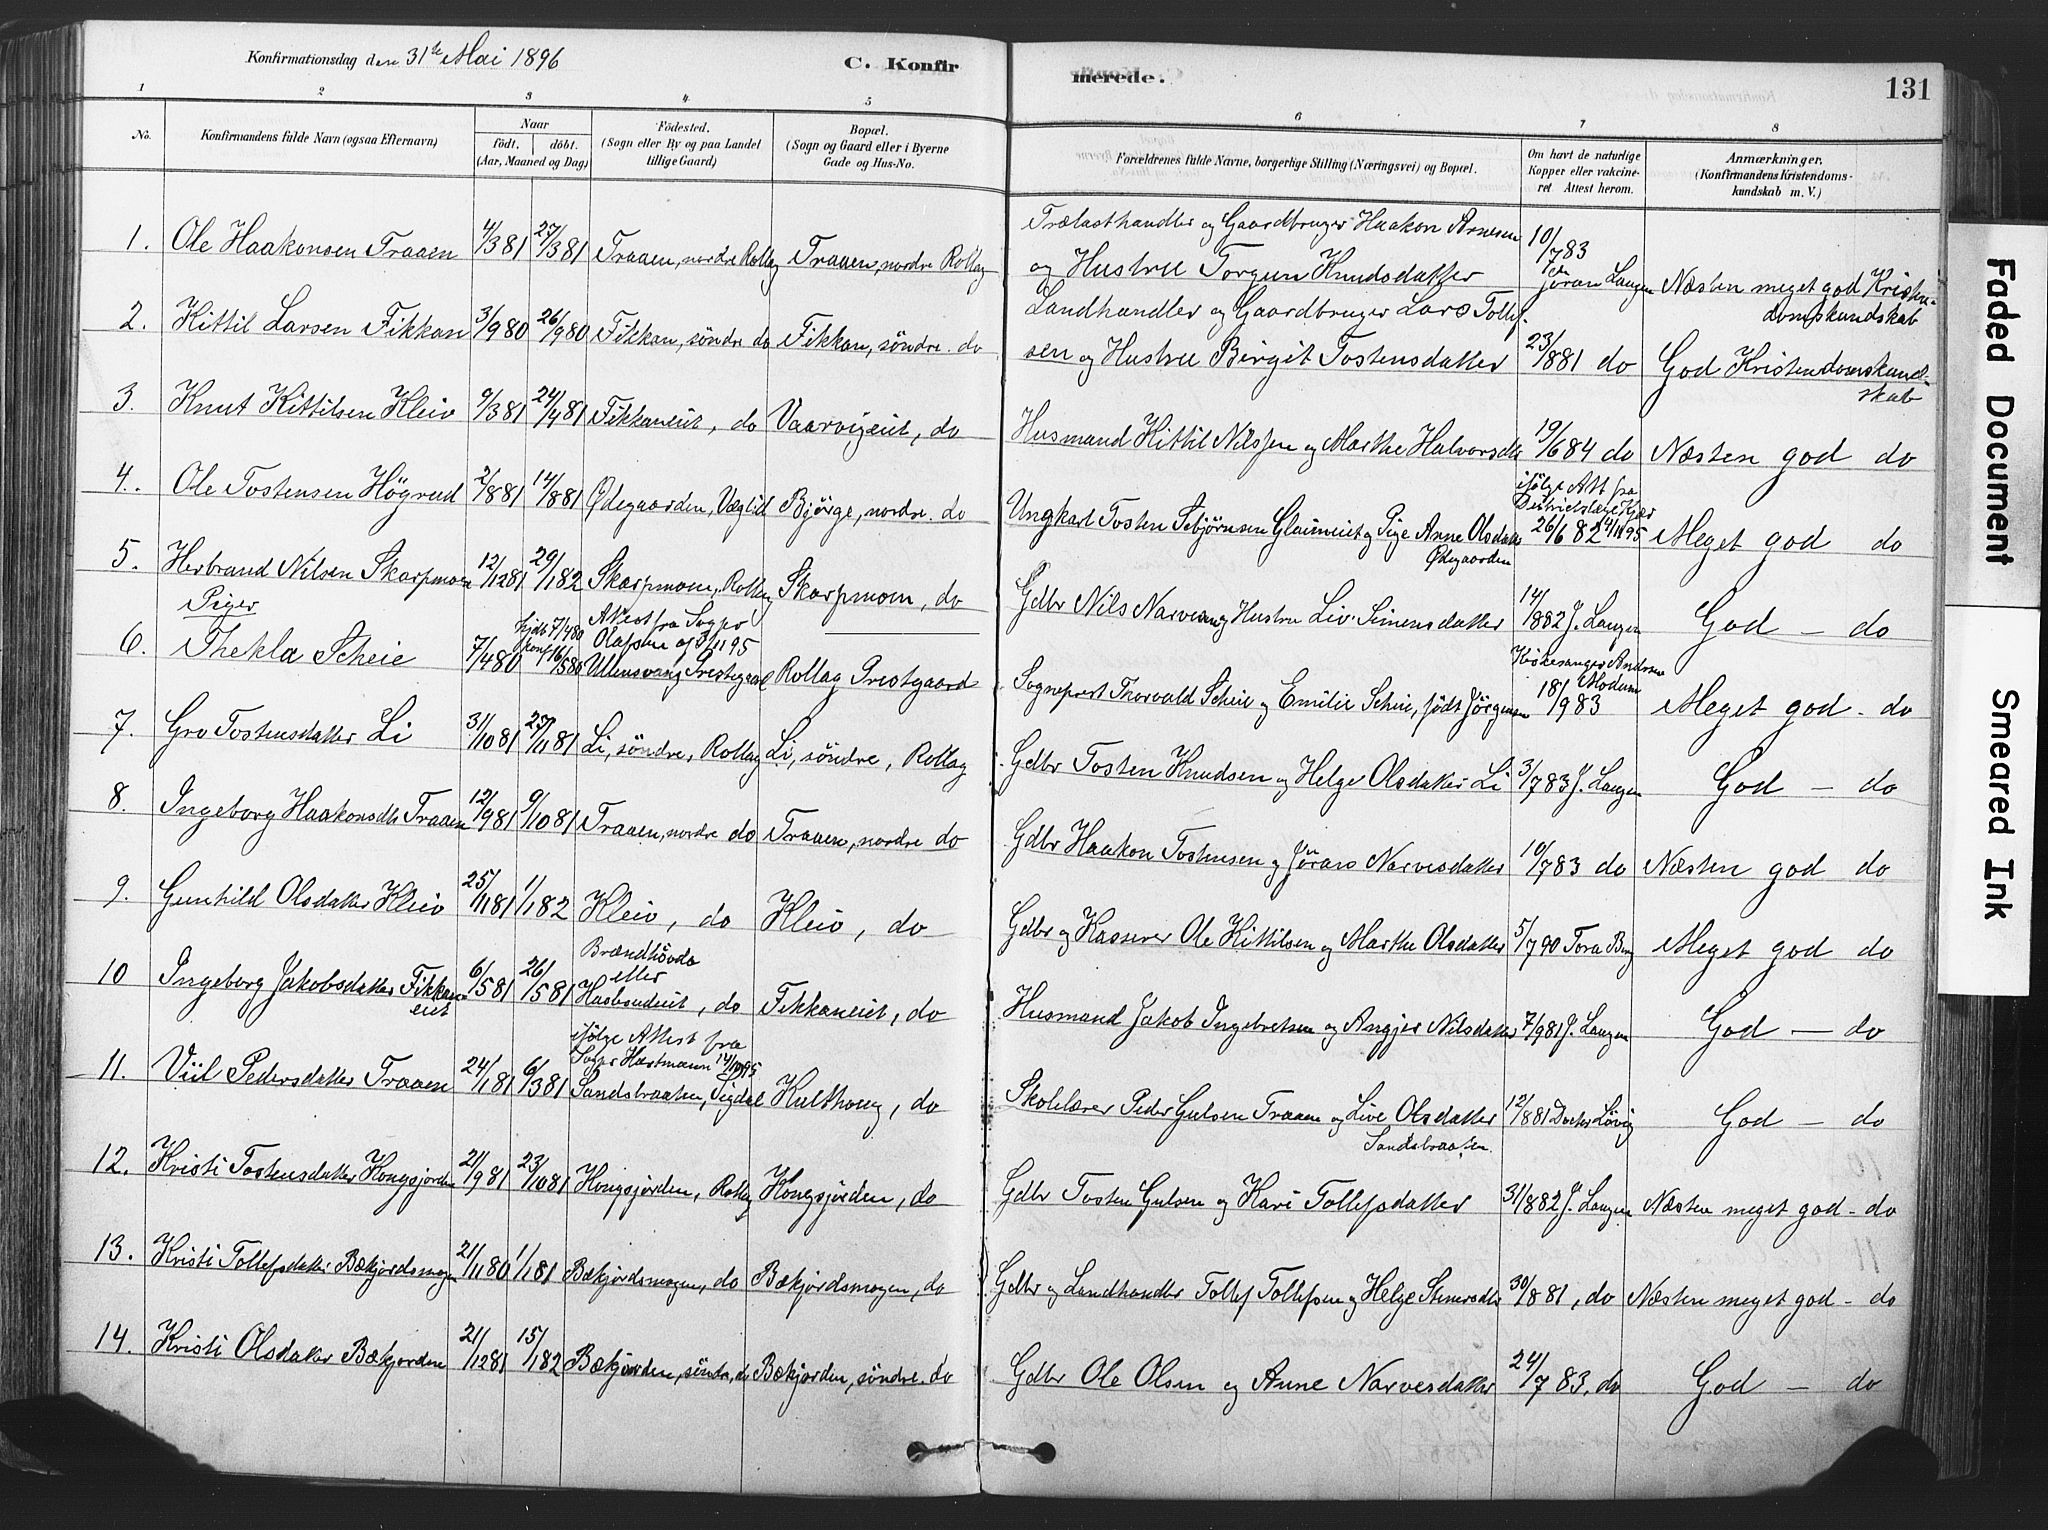 Konfirmationsdag den 31te Mai 1896
C. Konfir
merede.
131
1 2 3 4 5 6 7 8
No.
Konfirmandens fulde Navn (ogsaa Efternavn)
Naar
født. døbt.
(Aar, Maaned og Dag)
Fødested.
(Sogn eller By og paa Landet
tillige Gaard)
Bopæl.
(Sogn og Gaard eller i Byerne
Gade og Hus-No.
Forældrenes fulde Navne, borgerlige Stilling (Næringsvei) og Bopæl.
Om havt de naturlige
Kopper eller vakcine-
ret Attest herom.
Anmærkninger.
(Konfirmandens Kristendoms-
kundskab m. V.)
1. Ole Haakonsen Traaen 4/3 81 27/3 81 Traaen, nordre Rollag Traaen, nordre Rollag
Trælasthandler og Gaardbruger Haakon Arnesen
og Hustru Torgun Knudsdatter 10/7 83 Jöran Laugen Næsten meget god Kristen-
domskundskab
2. Kittil Larsen Fikkan 3/9 80 26/9 80 Fikkan, søndre do Fikkan, søndre. do
Landhandler og Gaardbruger Lars Tollef-
sen og Hustru Birgit Tostensdatter 23/8 81 do God Kristendomskund-
skab
3. Knut Kittilsen Kleiv 9/3 81 24/4 81 Fikkaneiet, do Vaarvigeiet, do
Husmand Kittil Nilssen og Marthe Halvorsdtr 19/6 84 do Næsten god do
4. Ole Tostensen Högrud 2/8 81 14/8 81 Ødegaarden, Væglid Bjørge, nordre. do
Ungkarl Tosten Sebjørnsen Glaimeiet og Pige Anne Olsdatter
Ødegaarden
ifølge Att fra
Distriktslæge Kjær
26/6 82 4/11 95 Meget god do
5. Herbrand Nilsen Skarpmoen 12/12 81 29/1 82 Skarpmoen, Rollag Skarpmoen, do
Gdbr Nils Narvesen og Hustru Liv Simensdatter 14/8 82 J. Laugen God – do
Piger
6. Thekla Scheie 7/4 80 hjdt 7/4 80 konf 16/5 80
Attest fra Sogpr
Olafsen af 5/11 95
Ullensvang Prestegaard Rollag Prestgaard
Sogneprest Thorvald Scheie og Emilie Scheie, født Jörgensen
Kirkesanger Andersen
Modum
18/9 83 Meget god – do
7. Gro Tostensdatter Li 31/10 81 27/11 81 Li, søndre, Rollag Li, søndre, Rollag
Gdbr Tosten Knudsen og Helge Olsdatter Li 3/7 83 J. Laugen God – do
8. Ingeborg Haakonsdtr Traaen 12/9 81 9/10 81 Traaen, nordre do Traaen, nordre do
Gdbr Haakon Tostensen og Jörand Narvesdatter 10/7 83 do Næsten god do
9. Gunhild Olsdatter Kleiv 25/11 81 1/1 82 Kleiv, do Kleiv, do
Gdbr og Kasserer Ole Kittilsen og Marthe Olsdatter 5/7 90 Tora Berg Meget god do
10 Ingeborg Jakobsdatter Fikkan-
eiet 6/5 81 26/5 81
Brændhövda
eller
Hasbendeiet, do Fikkaneiet, do
Husmand Jakob Ingebretsen og Angjer Nilsdatter 7/9 81 J. Laugen God – do
11. Viil Pedersdatter Traaen 24/1 81 6/3 81
ifølge Attest fra
Sogpr Hartmann 14/10 95
Sandsbraaten, Sigdal Kulthoug, do
Skolelærer Peder Gulsen Traaen og Live Olsdatter
Sandsbraaten. 12/8 81 Doctor Lövig God – do
12. Kristi Tostensdatter Kongsjorden 21/9 81 23/10 81 Kongsjorden, Rollag Kongsjorden, do
Gdbr Tosten Gulsen og Kari Tollefsdatter 31/8 82 J. Laugen Næsten meget god – do
13. Kristi Tollefsdatter Bækjordsmogen 21/11 80 1/1 81 Bækjordsmogen, do Bækjordsmogen, do
Gdbr og Landhandler Tollef Tollefsen og Helge Stenersdtr 30/8 81, do Næsten meget god – do
14. Kristi Olsdatter Bækjorden 21/12 81 15/1 82 Bækjorden, söndre, do Bækjorden, søndre. do
Gdbr Ole Olsen og Anne Narvesdatter 24/7 83, do God – do
Faded Document
Smeared Ink